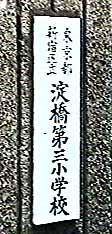 東京都
新宿区立
淀橋第三小学校